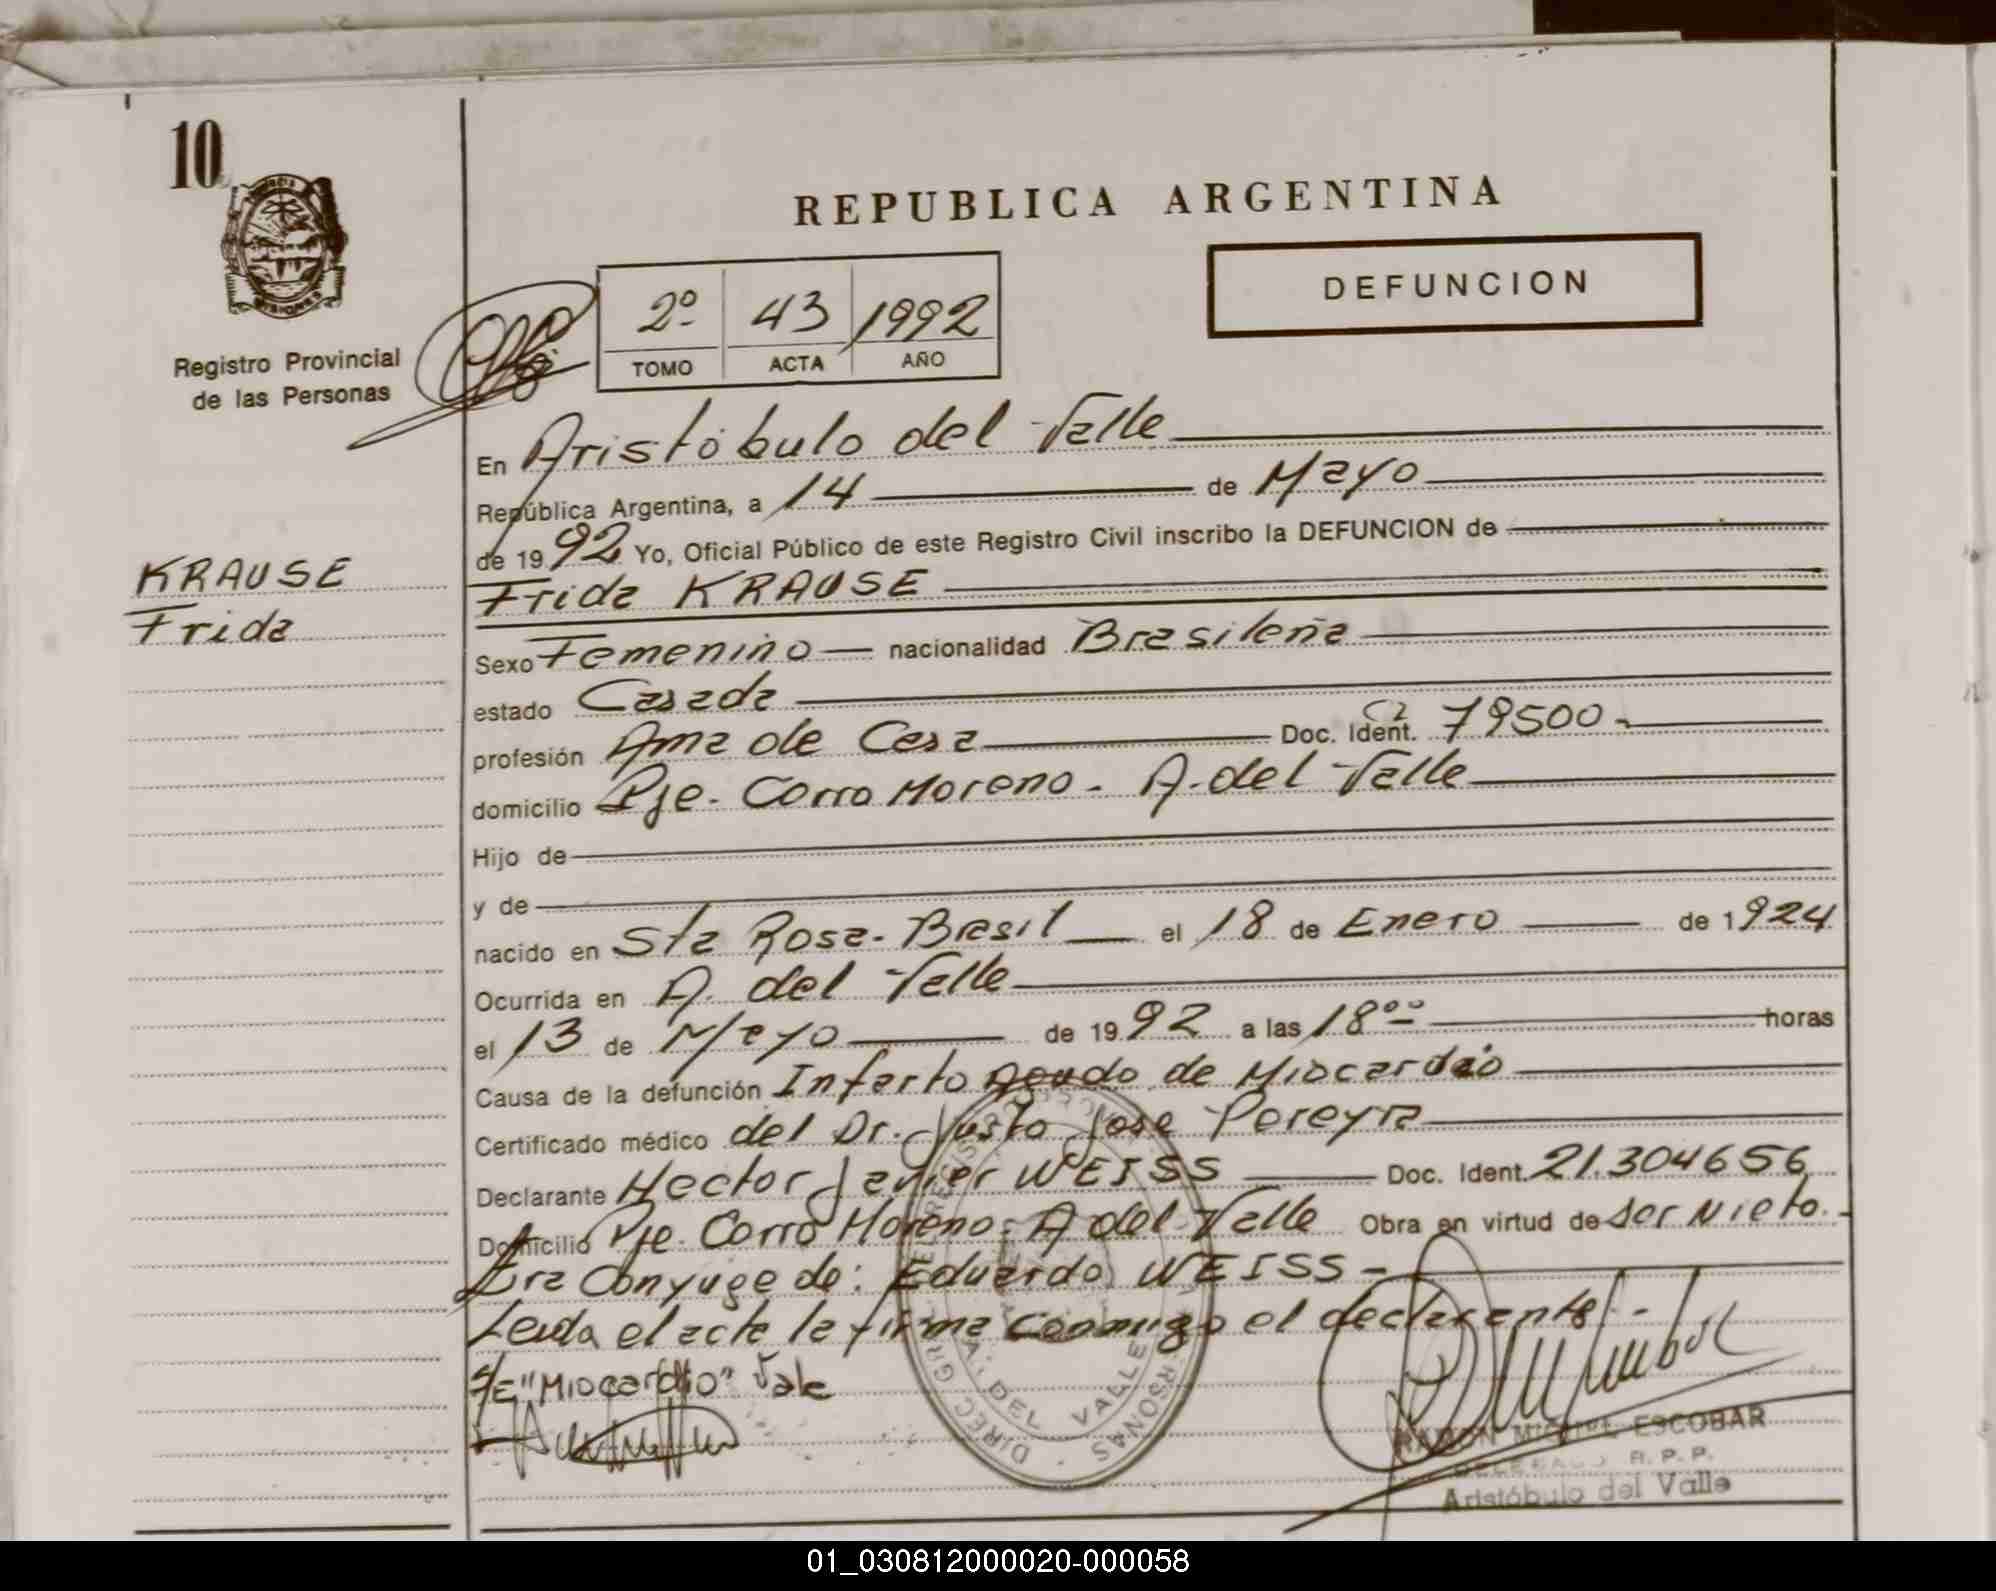 10
REPUBLICA ARGENTINA
DEFUNCION
2º 43 1992
TOMO ACTA AÑO
Registro Provincial
de las Personas
MISIONES
KRAUSE
Frida
En Aristóbulo del Valle
República Argentina, a 14 de Mayo
de 1992 Yo, Oficial Público de este Registro Civil inscribo la DEFUNCION de
Frida KRAUSE
Sexo Femenino nacionalidad Brasileña
estado Casada
profesión Ama de Casa Doc. Ident. CI 79500
domicilio Pje. Corro Moreno - A. del Valle
Hijo de
y de
nacido en Sta Rosa - Brasil el 18 de Enero de 1924
Ocurrida en A. del Valle
el 13 de Mayo de 1992 a las 18ºº horas
Causa de la defunción Infarto Agudo de Miocardio
Certificado médico del Dr. Justo José Pereyra
Declarante Hector Javier WEISS Doc. Ident. 21.304656
Domicilio Pje. Corro Moreno - A del Valle Obra en virtud de ser Nieto.-
Era Conyuge de: Eduardo WEISS -
Leida el acta la firma conmigo el declarante.-
S/E "Miocardio" Vale
DIREC. GRAL. DEL REGISTRO
PERSONAS
A. DEL VALLE
RAMON MIGUEL ESCOBAR
DELEGADO R.P.P.
Aristóbulo del Valle
01_030812000020-000058